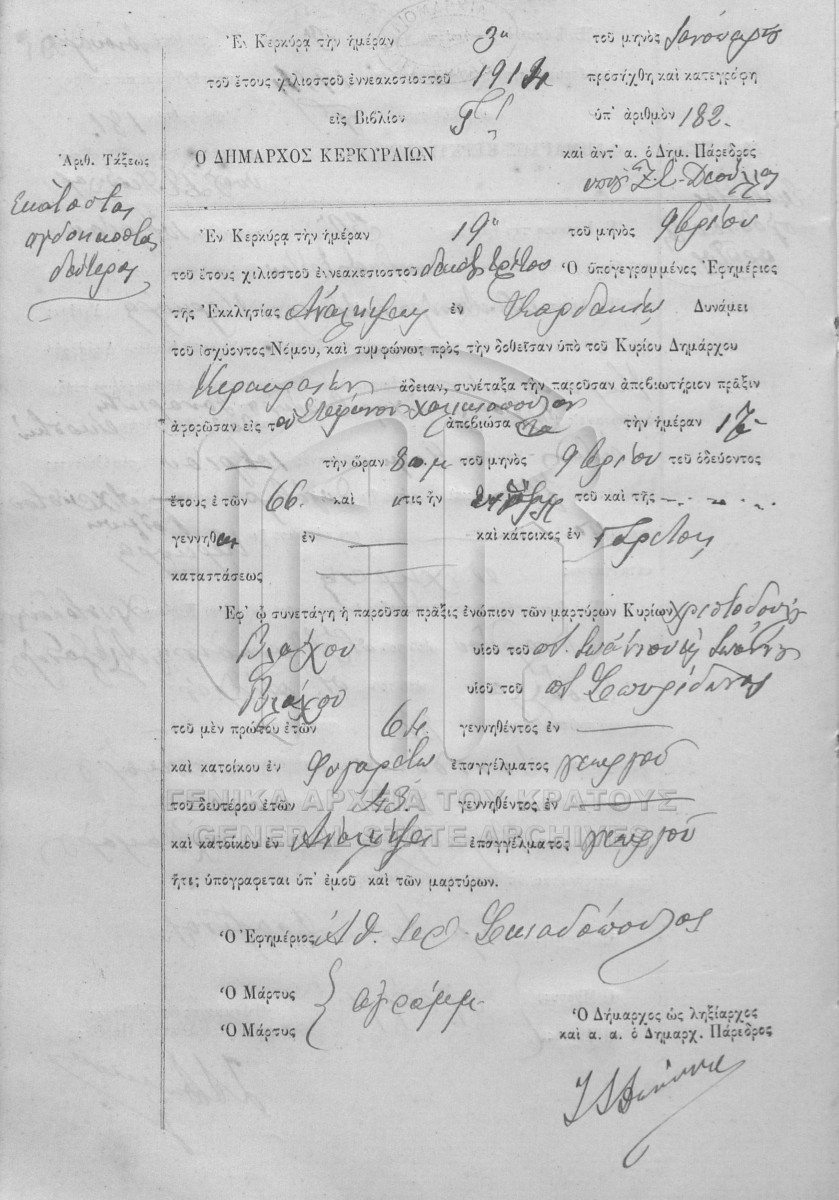 Ἐν Κερκύρᾳ τὴν ἡμέραν 3η τοῦ μηνὸς
τοῦ ἔτους χιλιοστοῦ ἐννεακοσιοστοῦ 1914 προσήχθη καὶ κατεγράφη
εἰς Βιβλίον Γ! ὑπ' ἀριθμὸν 182.
Ἀριθ. Τάξεως
Ὁ ΔΗΜΑΡΧΟΣ ΚΕΡΚΥΡΑΙΩΝ καὶ ἀντ' α. ὁ Δημ. Πάρεδρος
Ἑκατοστὸς
ὀγδοηκοστὸς
δεύτερος
Ἐν Κερκύρᾳ τὴν ἡμέραν 19η τοῦ μηνὸς 9βρίου
τοῦ ἔτους χιλιοστοῦ ἐννεακοσιοστοῦ δεκάτου τρίτου Ὁ ὑπογεγραμμένος Ἐφημέριος
τῆς Ἐκκλησίας Ἀναλήψεως ἐν Δυνάμει
τοῦ ἰσχύοντος Νόμου, καὶ συμφώνως πρὸς τὴν δοθεῖσαν ὑπὸ τοῦ Κυρίου Δημάρχου
Κερκυραίων ἄδειαν, συνέταξα τὴν παροῦσαν ἀποβιωτήριον πρᾶξιν
ἀφορῶσαν εἰς τοῦ ἀποβιώσα τὴν ἡμέραν 17
τὴν ὥραν 8 π.μ τοῦ μηνὸς 9βρίου τοῦ ὁδεύοντος
ἔτους ἐτῶν 66. καὶ ἥτις ἦν τοῦ καὶ τῆς
γεννηθ ἐν καὶ κάτοικος ἐν
καταστάσεως
Ἐφ' ᾧ συνετάγη ἡ παροῦσα πρᾶξις ἐνώπιον τῶν μαρτύρων Κυρίων Χριστοδούλ
Βλάχου υἱοῦ τοῦ
Βλάχου υἱοῦ τοῦ π. Σπυρίδωνος
τοῦ μὲν πρώτου ἐτῶν 64. γεννηθέντος ἐν
καὶ κατοίκου ἐν ἐπαγγέλματος γεωργοῦ
ΓΕΝΙΚΑ ΑΡΧΕΙΑ ΤΟΥ ΚΡΑΤΟΥΣ
τοῦ δευτέρου ἐτῶν 43. γεννηθέντος ἐν
GENERAL STATE ARCHIVES
καὶ κατοίκου ἐν ἐπαγγέλματος γεωργοῦ
ἥτις ὑπογράφεται ὑπ' ἐμοῦ καὶ τῶν μαρτύρων.
Ὁ Ἐφημέριος Ἀθ. Ἱερ. Σκιαδόπουλος
Ὁ Μάρτυς
ἀγράμμ
Ὁ Μάρτυς
Ὁ Δήμαρχος ὡς ληξίαρχος
καὶ α. α. ὁ Δημαρχ. Πάρεδρος